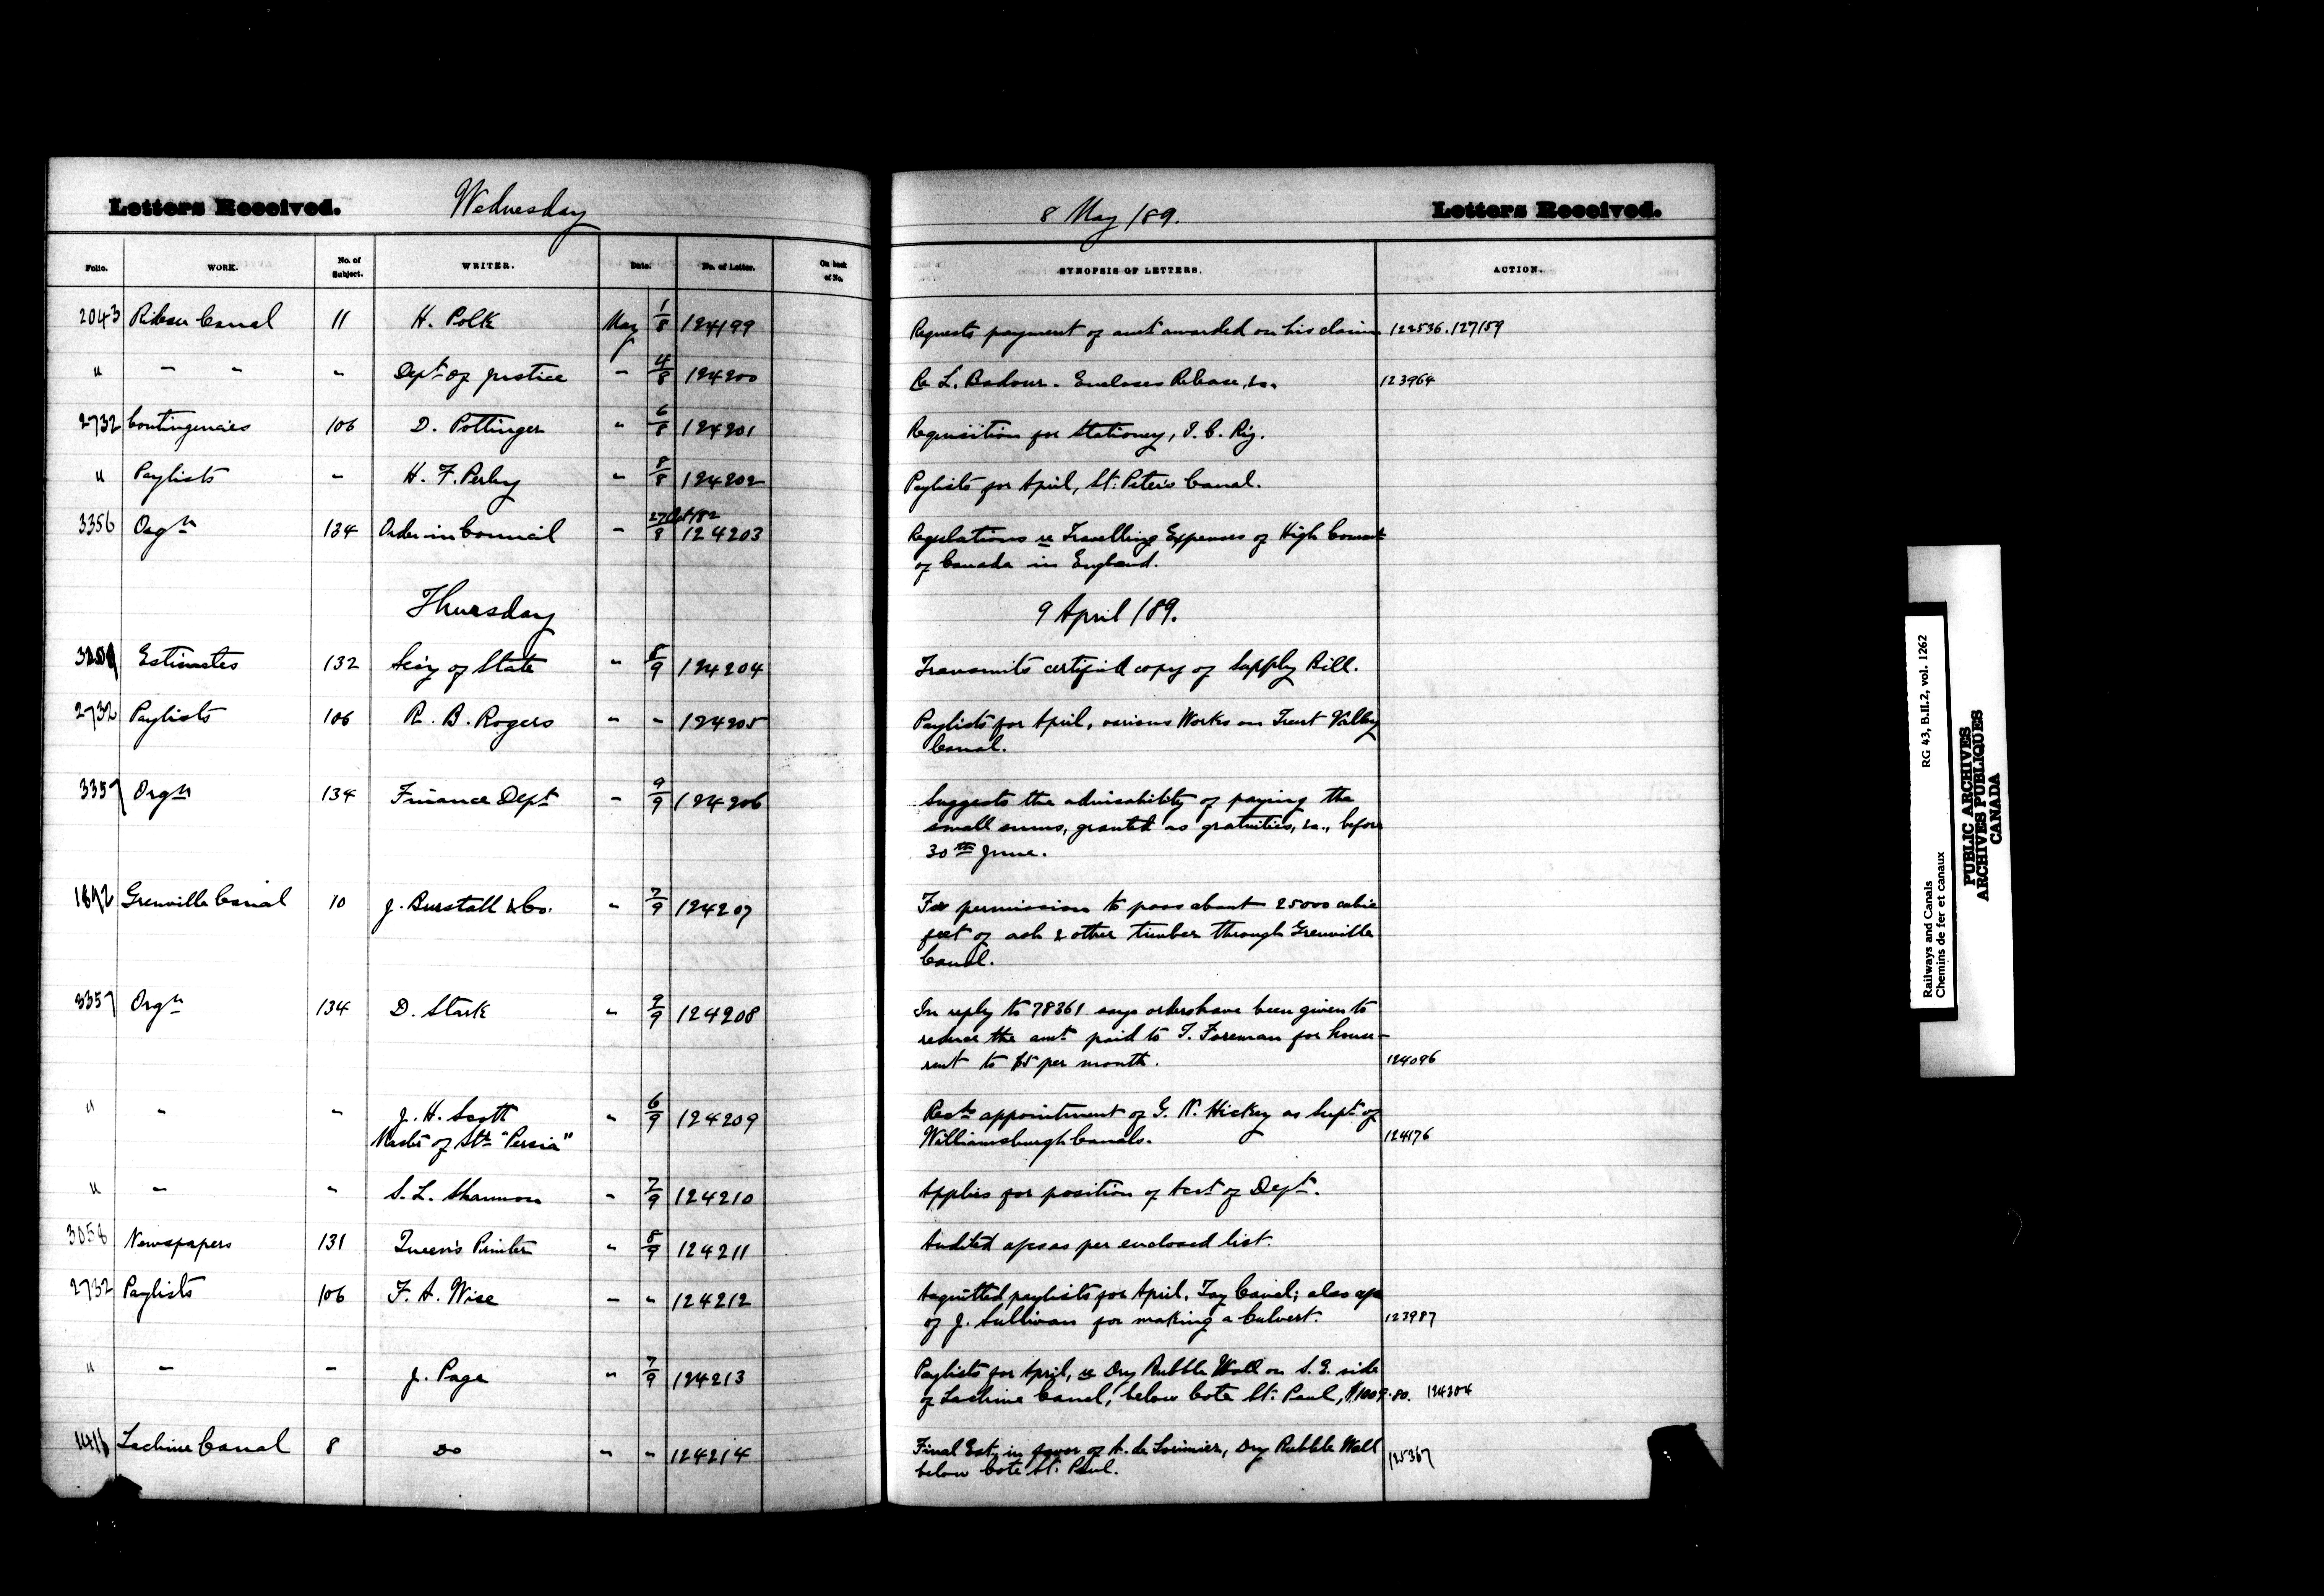 Letters Received. Wednesday 8 May /89. Letters Received.
Folio. WORK. No. of Subject. WRITER. Date. No. of Letter. On back of No. SYNOPSIS OF LETTERS. ACTION.
2043 Rideau Canal 11 H. Polk May 1/8 124199 Requests payment of amt awarded on his claim 122536. 127159
" " " " Dept of Justice " 4/8 124200 Re L. Badour. Encloses Release, &c. 123964
2732 Contingencies 106 D. Pottinger " 6/8 124201 Requisition for Stationery, I. C. Ry.
" Paylists " H. F. Perley " 8/8 124202 Paylists for April, St. Peter's Canal.
3356 Orgn 134 Order in Council " 27 Oct/82 /8 124203 Regulations re Travelling Expenses of High Commr
of Canada in England.
Thursday 9 April /89.
Estimates 132 Sec'y of State " 8/9 124204 Transmits certified copy of Supply Bill.
2732 Paylists 106 R. B. Rogers " " 124205 Paylists for April, various Works on Trent Valley
Canal.
3357 Orgn 134 Finance Dept " 9/9 124206 Suggests the advisability of paying the
small sums, granted as gratuities, &c., before
30th June.
1692 Grenville Canal 10 J. Burstall & Co. " 7/9 124207 For permission to pass about 25000 cubic
feet of ash & other timber through Grenville
Canal.
3357 Orgn 134 D. Stark " 9/9 124208 In reply to 78361 says orders have been given to
reduce the amt paid to T. Foreman for house-
rent to $5 per month. 124096
" " " J. H. Scott " 6/9 124209 Recds appointment of G. N. Hickey as Supt of
Master of Str "Persia" Williamsburgh Canals. 124176
" " " S. L. Shannon " 7/9 124210 Applies for position of Acct of Dept.
3058 Newspapers 131 Queen's Printer " 8/9 124211 Audited a/cs as per enclosed list.
2732 Paylists 106 F. A. Wise " " 124212 Acquitted paylists for April, Tay Canal; also a/c
of J. Sullivan for making a Culvert. 123987
" " " J. Page " 7/9 124213 Paylists for April, re Dry Rubble Wall on S. E. side
of Lachine Canal, below Cote St. Paul, $1009.80. 124304
Lachine Canal 8 Do " " 124214 Final Est. in favor of A. de Lorimier, Dry Rubble Wall
below Cote St. Paul. 125367
Railways and Canals RG 43, B.II.2, vol. 1262
Chemins de fer et canaux
PUBLIC ARCHIVES
ARCHIVES PUBLIQUES
CANADA